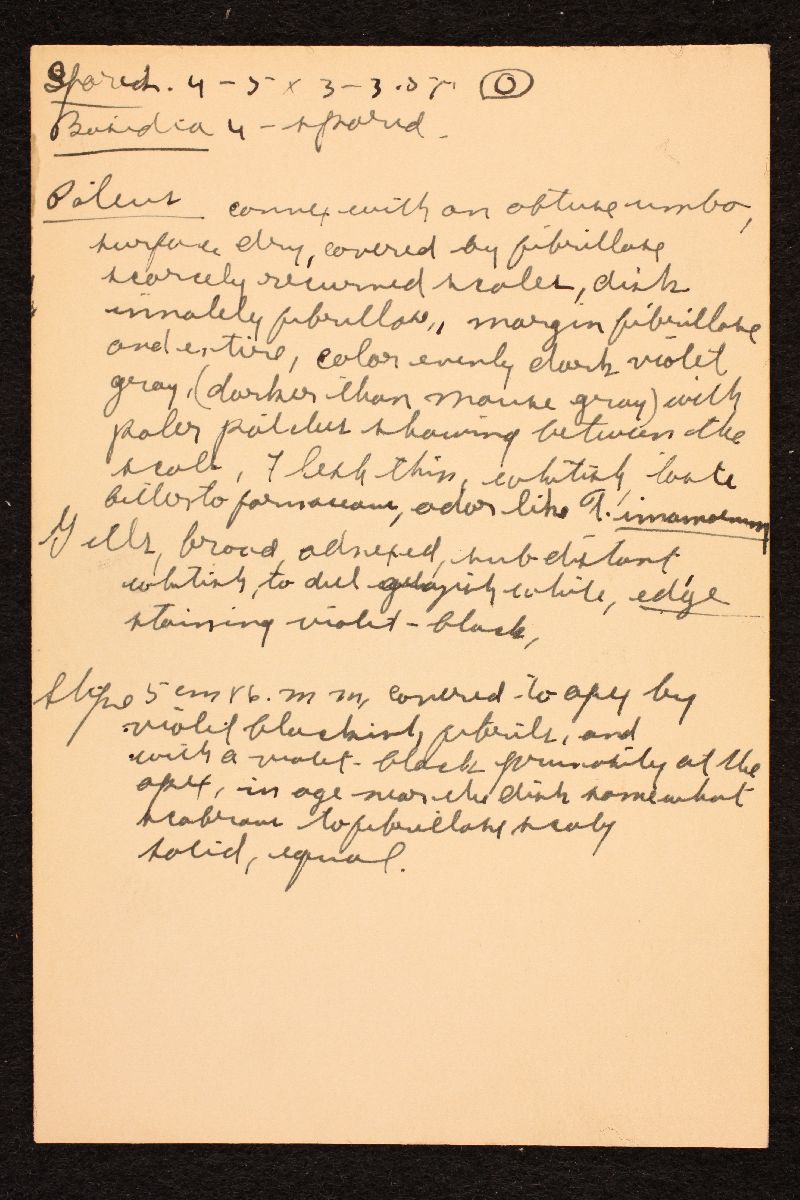 Spores. 4 – 5 x 3 – 3.5 γ. O
Basidia 4 – spored.
Pileus convex with an obtuse umbo,
surface dry, covered by fibrillose
scarcely recurved scales, disk
innately fibrillose, margin fibrillose
and entire, color evenly dark violet
gray, (darker than mouse gray) with
paler patches showing between the
scales, Flesh thin, whitish, taste
bitter to farinaceous, odor like T.
Gills, broad, adnexed, subdistant
whitish, to dull grayish white, edge
staining violet – black,
Stipe 5 cm x 6. mm, covered to apex by
violet blackish fibrils, and
with a violet – black pruinosity at the
apex, in age near the disk somewhat
scabrous to fibrillose scaly
solid, equal.